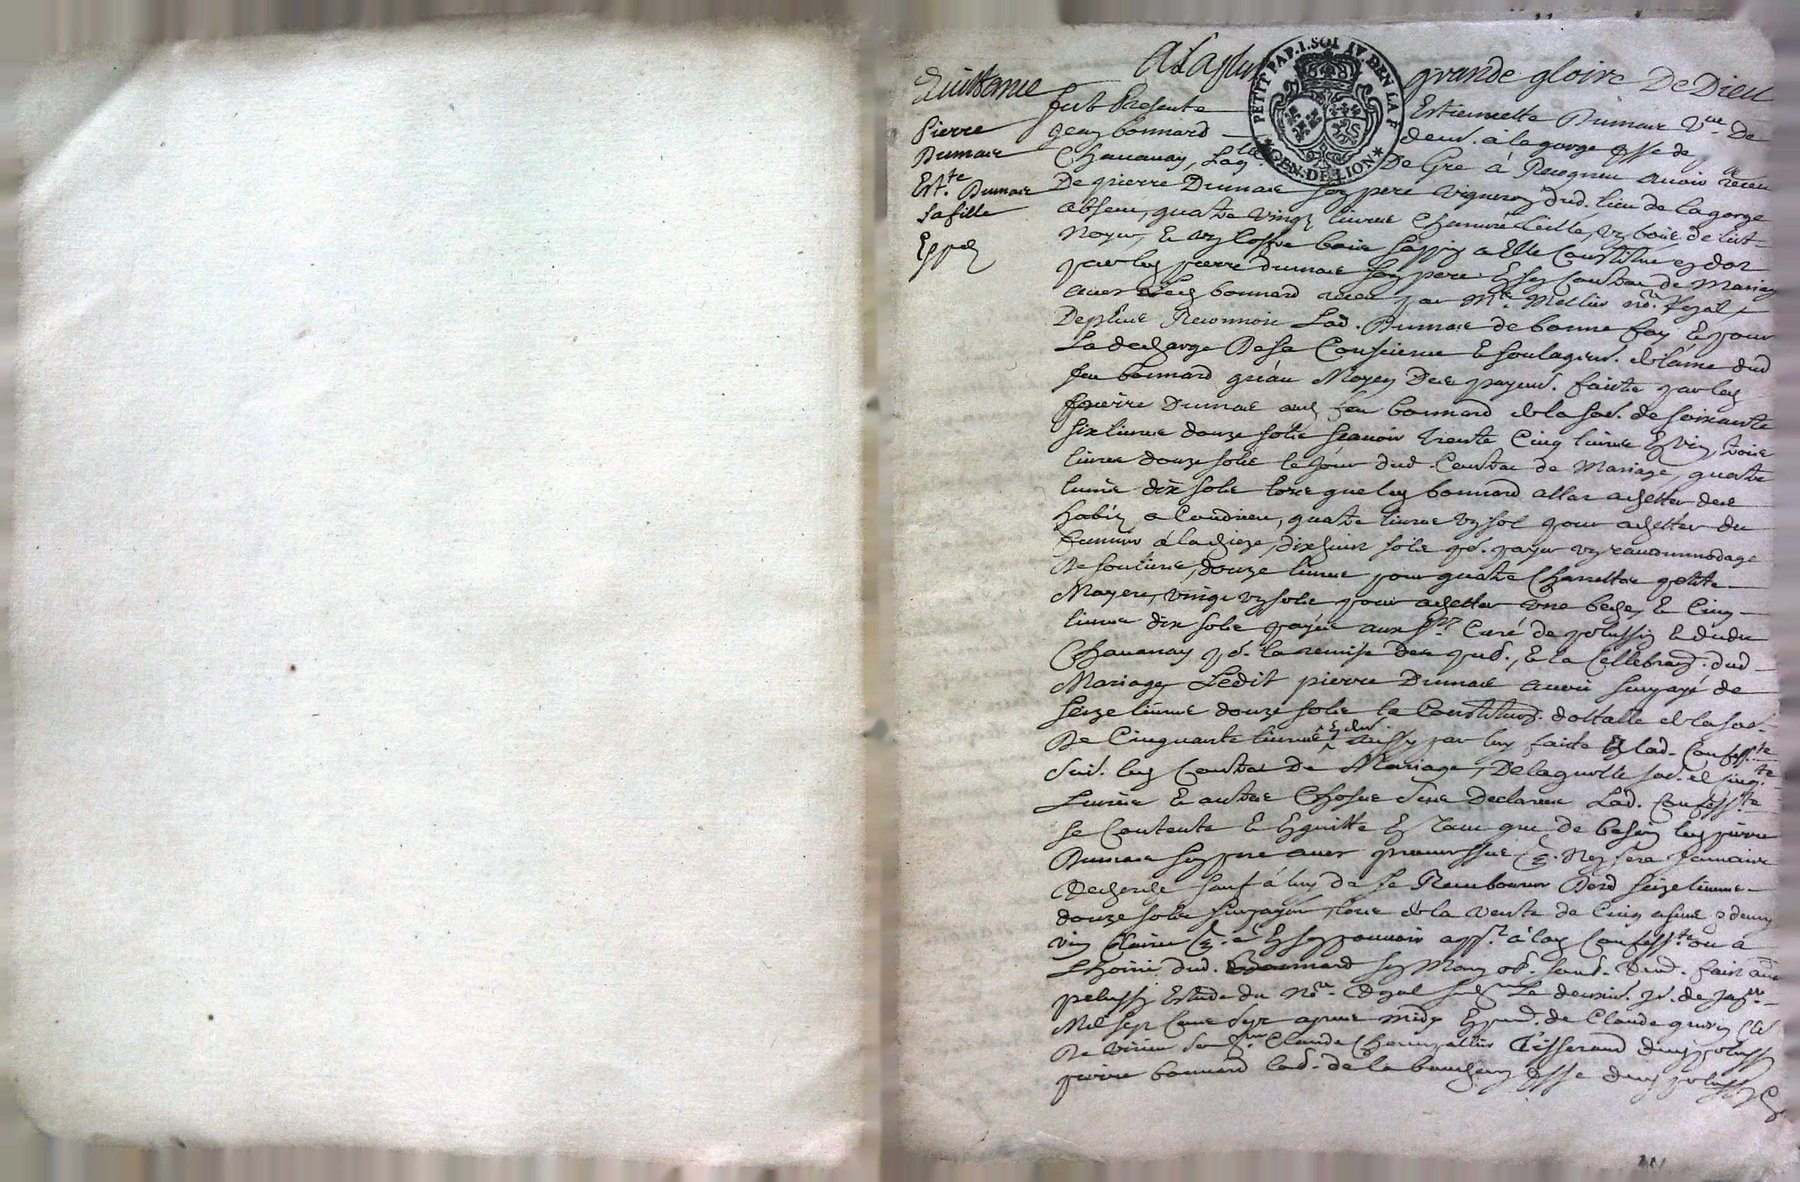 A La plus grande gloire De Dieu
PETIT PAP. I. SOL IV DEN LA F
GEN. DE LION
Quittance
Pierre
Dumas
Est.te Dumas
Sa fille
Exped
fust Presente Estiennette Dumas Vve De
Jean bonnard demt. à la gorge psse de
Chauanay, Laqlle De Gré à Recogneu auoir receu
De pierre Dumas son pere vigneron dud. lieu de la gorge
absent, quatre vingt liures
Noyer, Et un coffre bois sappin a Elle Constitué en dot
par led pierre dumas son pere En son Contrat de Mariage
auec led feu bonnard receu par Me. Mellier nore. Royal
De plus Reconnoit Lad. Dumas de bonne foy Et pour
La decharge De sa Conscience Et soulagemt. de l'ame dud
feu bonnard qu'au Moyen Des payemt. faits par led
pierre Dumas aud feu bonnard de la so. de soixante
six liures douze sols scauoir trente Cinq liures En vin, trois
liures douze sols le jour dud. Contrat de Mariage, quatre
liures dix sols lors que led bonnard alla achetter des
habits a Condrieu, quatre liures un sol pour achetter du
dixhuit sols pr. payer un racommodage
De souliers, douze liures pour quatre Charrettes petits
Noyers, vingt un sols pour achetter une beche, Et Cinq
liures dix sols payés aux Srs. Curé de pelussin Et dudit
Chauanay pr. la remise Des Et la Cellebraon. dud
Mariage Ledit pierre Dumas auoir surpayé de
seize liures douze sols la Constituon. dottalle de la so.
De Cinquante liures aussy par luy faite En lad. Confesste
Suiv. led Contrat De Mariage, De laquelle so. et susd.
Liures Et autres Choses sus declarées Lad. Confesste
se Contente Et En quitte En tant que de besoin led pierre
Dumas son pere auec promesse Nen sera Jamais
Recherché sauf à luy de se Rembourser Desd seize liures
douze sols surpayés, lors de la vente de Cinq asnées demy
vin Clairet appt. à lad Confesste ou à
L'hoirie dud. bonnard son Mary Fait aud
pelussin Estude du Nore. Royal le dernier Jr. de Janer.
Mil sept Cens apres midy En pnce. de Claude
De Virieu Claude Tisserand dud pelussin
pierre bonnard labr. de psse dud pelussin